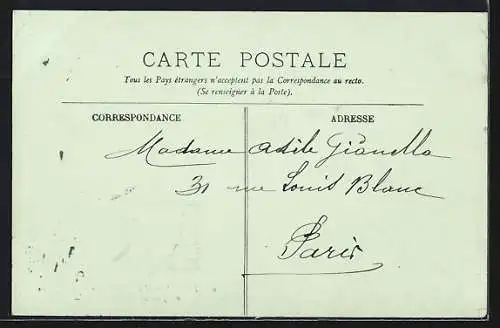 CARTE POSTALE
Tous les Pays étrangers n'acceptent pas la Correspondance au recto.
(Se renseigner à la Poste).
CORRESPONDANCE
ADRESSE
Madame Adèle Gianella
31 rue Louis Blanc
Paris